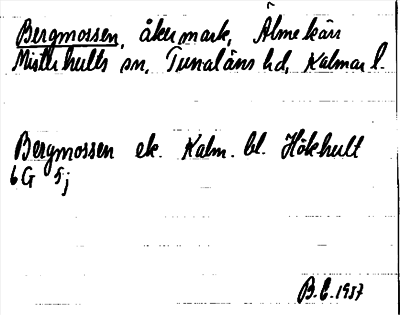 Bergmossen, åkermark, Älmekärr
Misterhults sn, Tunaläns hd, Kalmar l.
Bergmossen ek. Kalm. bl. Hökhult
6G 5j
B.C. 1937